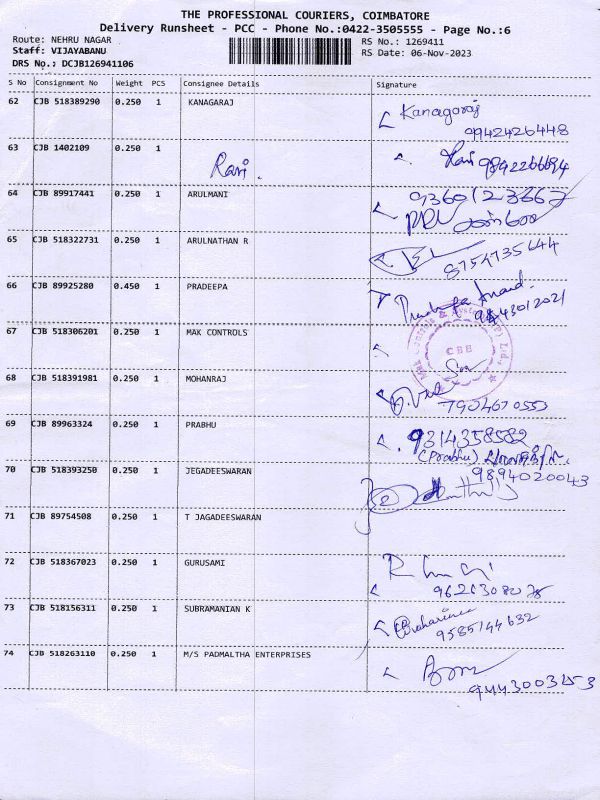 THE PROFESSIONAL COURIERS, COIMBATORE
Delivery Runsheet - PCC - Phone No.:0422-3505555 - Page No.:6
Route: NEHRU NAGAR
RS No.: 1269411
Staff: VIJAYABANU
RS Date: 06-Nov-2023
DRS No.: DCJB126941106
S No Consignment No Weight PCS Consignee Details Signature
62 CJB 518389290 0.250 1 KANAGARAJ Kanagaraj
9942426448
63 CJB 1402109 0.250 1
Ravi. Ravi 9842266694
64 CJB 89917441 0.250 1 ARULMANI
65 CJB 518322731 0.250 1 ARULNATHAN R
8754735644
66 CJB 89925280 0.450 1 PRADEEPA
67 CJB 518306201 0.250 1 MAK CONTROLS
CBE
68 CJB 518391981 0.250 1 MOHANRAJ
7904670553
69 CJB 89963324 0.250 1 PRABHU 9314358582
(Prabhu)
70 CJB 518393250 0.250 1 JEGADEESWARAN 9894020043
71 CJB 89754508 0.250 1 T JAGADEESWARAN
72 CJB 518367023 0.250 1 GURUSAMI
73 CJB 518156311 0.250 1 SUBRAMANIAN K
9585144632
74 CJB 518263110 0.250 1 M/S PADMALTHA ENTERPRISES
9443003253